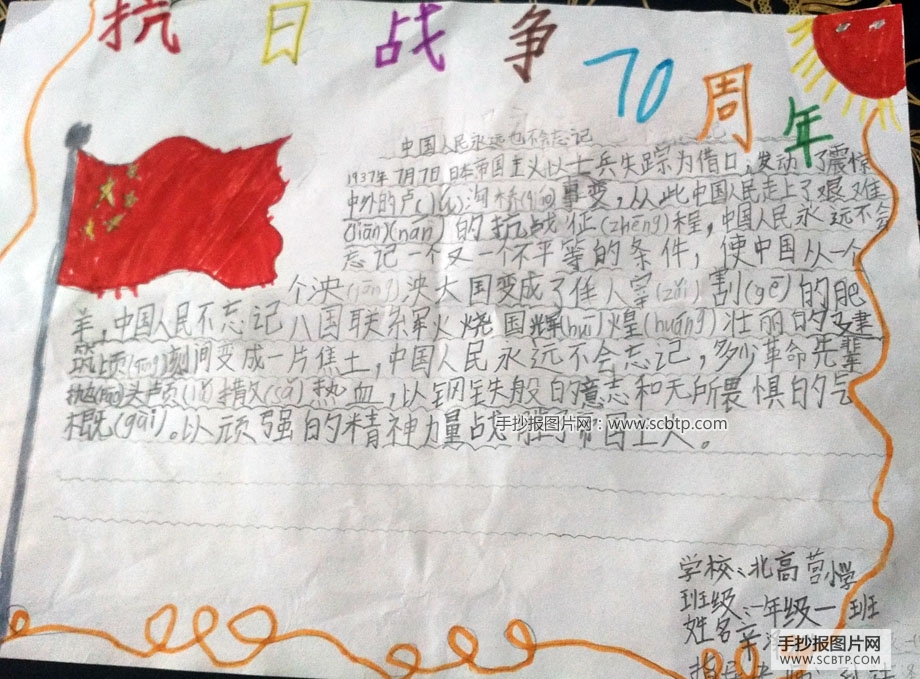 抗日战争70周年
中国人民永远也不会忘记
1937年7月7日日本帝国主义以士兵失踪为借口,发动了震惊
中外的卢(lú)沟桥(qiáo)事变,从此中国人民走上了艰难
(jiān)(nán)的抗战征(zhēng)程,中国人民永远不会
忘记一个又一个不平等的条件,使中国从一个
个泱(yāng)泱大国变成了任人宰(zǎi)割(gē)的肥
羊,中国人民不忘记八国联军火烧国辉(huī)煌(huáng)壮丽的建
筑顷(qǐng)刻间变成一片焦土,中国人民永远不会忘记,多少革命先辈
抛(pāo)头颅(lú)撒(sǎ)热血,以钢铁般的意志和无所畏惧的气
概(gài)。以顽强的精神力量战胜了帝国主义。
手抄报图片网:www.scbtp.com
学校:北高营小学
班级:一年级一班
姓名:辛
手抄报图片网
WWW.SCBTP.COM